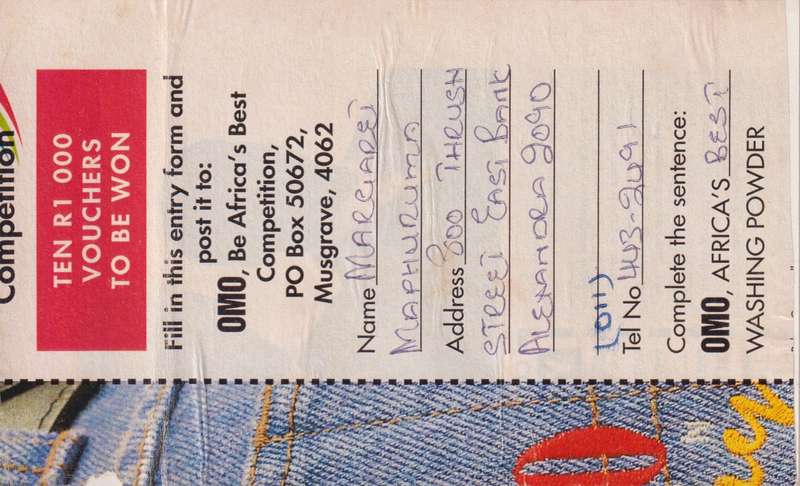 Competition
TEN R1 000
VOUCHERS
TO BE WON
Fill in this entry form and
post it to:
OMO, Be Africa's Best
Competition,
PO Box 50672,
Musgrave, 4062
Name MARGARET
MAPHURUMA
Address 300 THRUSH
STREET EAST BANK
ALEXANDRA 2090
(011)
Tel No 443-2491
Complete the sentence:
OMO, AFRICA'S BEST
WASHING POWDER